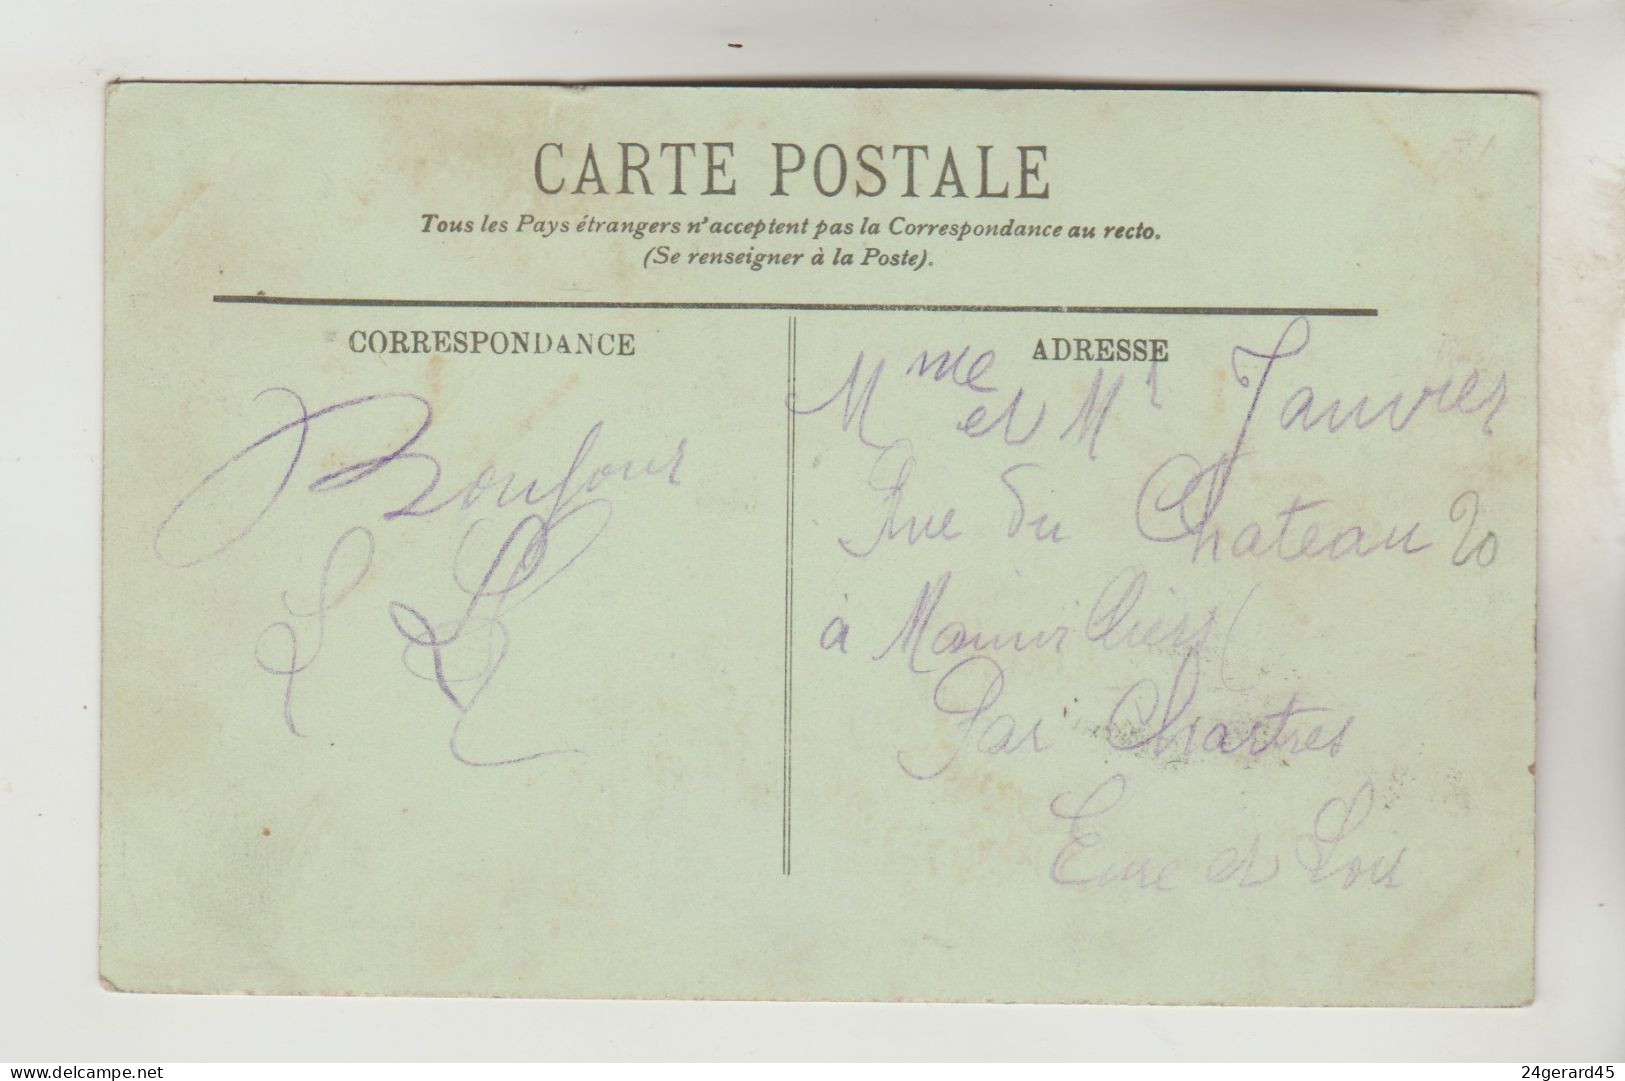 CARTE POSTALE
Tous les Pays étrangers n'acceptent pas la Correspondance au recto.
(Se renseigner à la Poste).
CORRESPONDANCE
Bonjour
L L
ADRESSE
Mme et Mr Janvier
Rue du Chateau 20
à Mainvilliers
Par Chartres
Eure et Loir
24gerard45
delcampe.net